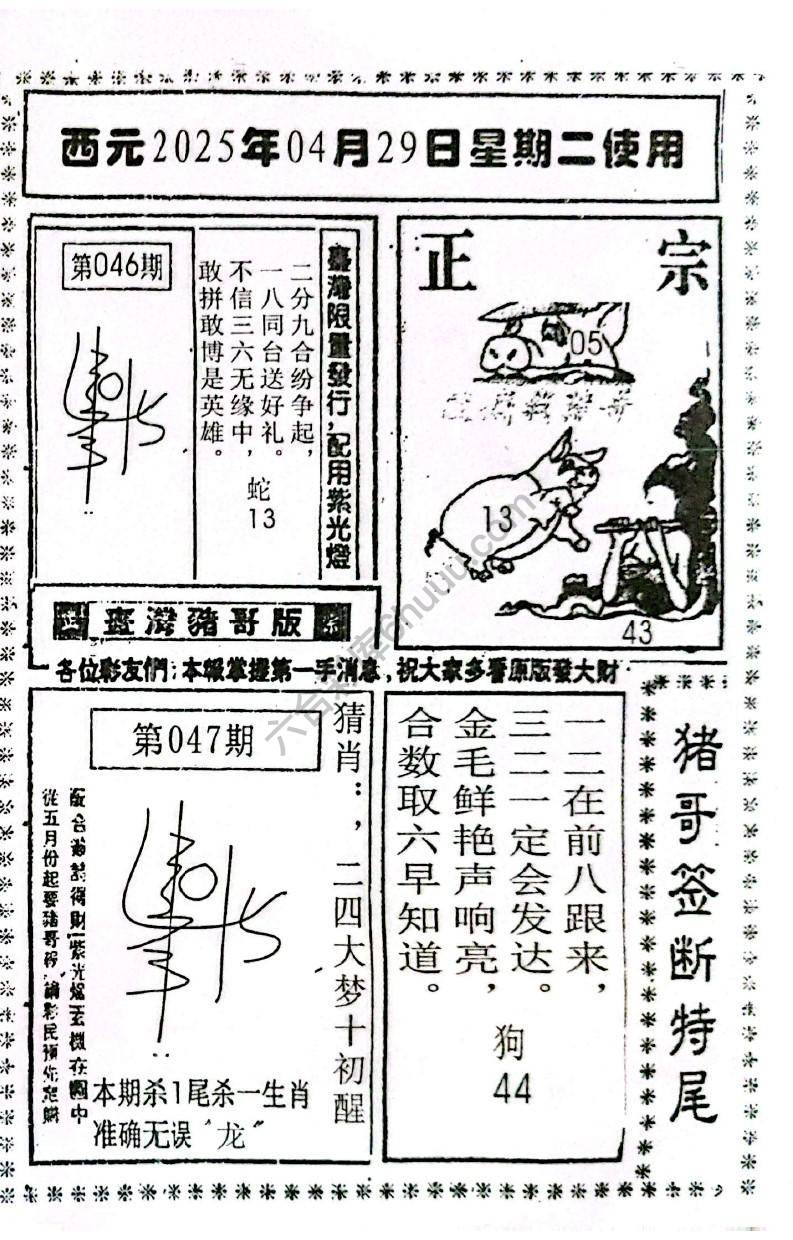 西元2025年04月29日星期二使用
第046期
臺灣限量發行，配用紫光燈
二分九合纷争起，
一八同台送好礼。
不信三六无缘中，
敢拼敢博是英雄。
蛇
13
正宗
05
13
43
臺灣豬哥版
各位彩友們：本報掌握第一手消息，祝大家多看原版發大財
第047期
猜肖：，二四大梦十初醒
從五月份起要豬哥报
本期杀1尾杀一生肖
准确无误“龙”
一二在前八跟来，
三二一定会发达。
金毛鲜艳声响亮，
合数取六早知道。
狗
44
猪哥签断特尾
六合彩库6huuu.com